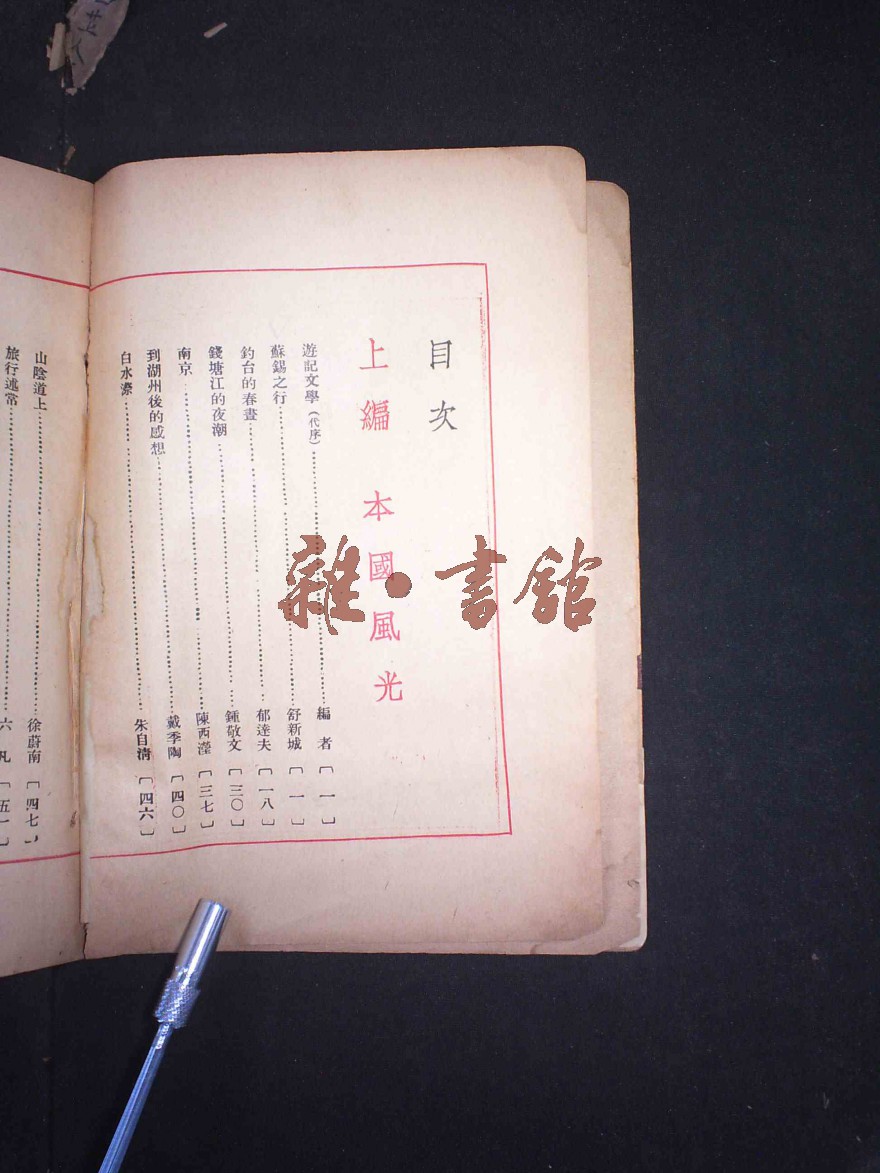 目次
上編 本國風光
遊記文學(代序)…………編者〔一〕
蘇錫之行…………舒新城〔一〕
釣台的春晝…………郁達夫〔一八〕
錢塘江的夜潮…………鍾敬文〔三〇〕
南京…………陳西瀅〔三七〕
到湖州後的感想…………戴季陶〔四〇〕
白水漈…………朱自淸〔四六〕
山陰道上…………徐蔚南〔四七〕
旅行述常…………六〔五一〕
雜·書館